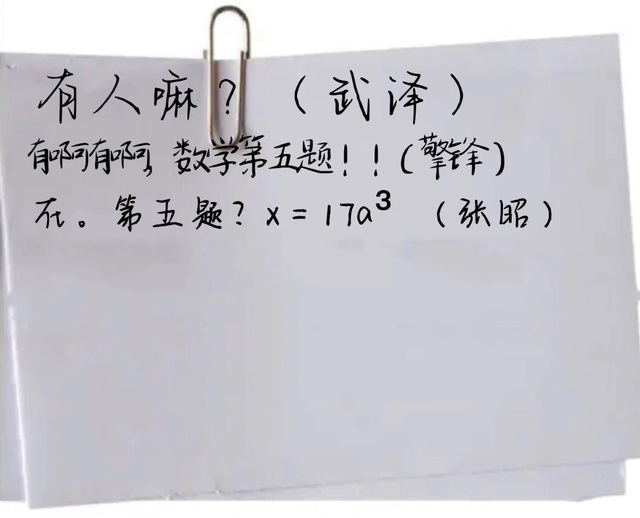 有人嘛？（武泽）
有啊有啊，数学第五题！！（擎锋）
在。第五题？x=17a³（张昭）